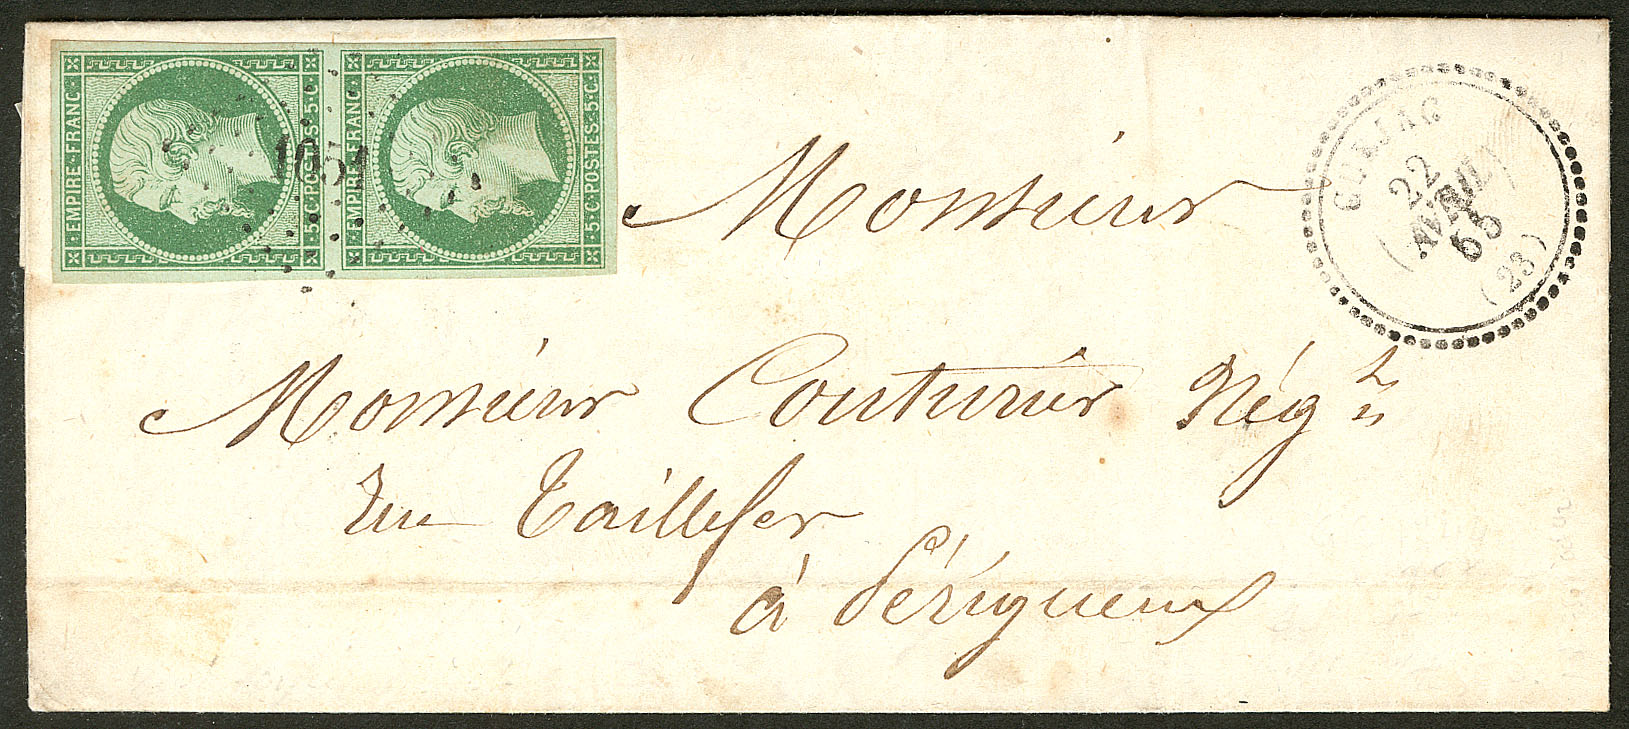 EMPIRE · FRANC ·
· 5 · C · POSTES · 5 · C ·
EMPIRE · FRANC ·
· 5 · C · POSTES · 5 · C ·
CUBJAC
22
AVRIL
55
(23)
Monsieur
Monsieur Couturier Nég.^t
rue Taillefer
à Périgueux